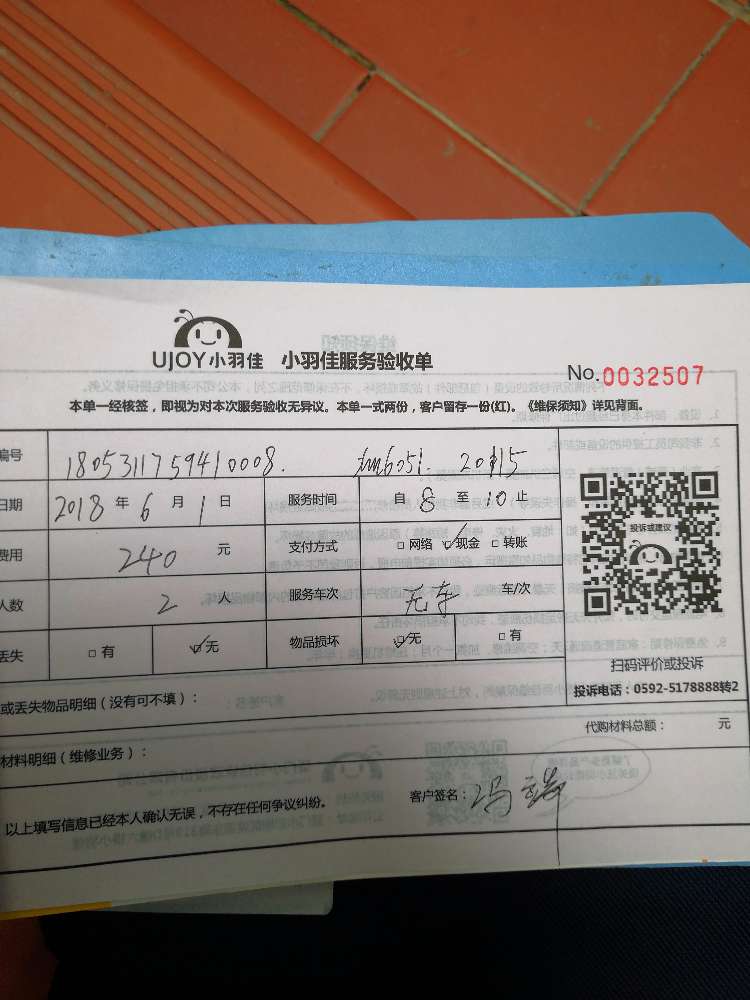 UJOY小羽佳 小羽佳服务验收单
No.0032507
本单一经核签，即视为对本次服务验收无异议。本单一式两份，客户留存一份(红)。《维保须知》详见背面。
编号 1805311759410008. 20115
日期 2018 年 6 月 1 日 服务时间 自 8 至 10 止
费用 240 元 支付方式 □ 网络 ☑ 现金 □ 转账
投诉或建议
人数 2 人 服务车次 无车 车/次
丢失 □ 有 ☑ 无 物品损坏 ☑ 无 □ 有
扫码评价或投诉
投诉电话：0592-5178888转2
或丢失物品明细（没有可不填）：
代购材料总额： 元
材料明细（维修业务）：
以上填写信息已经本人确认无误，不存在任何争议纠纷。 客户签名：冯